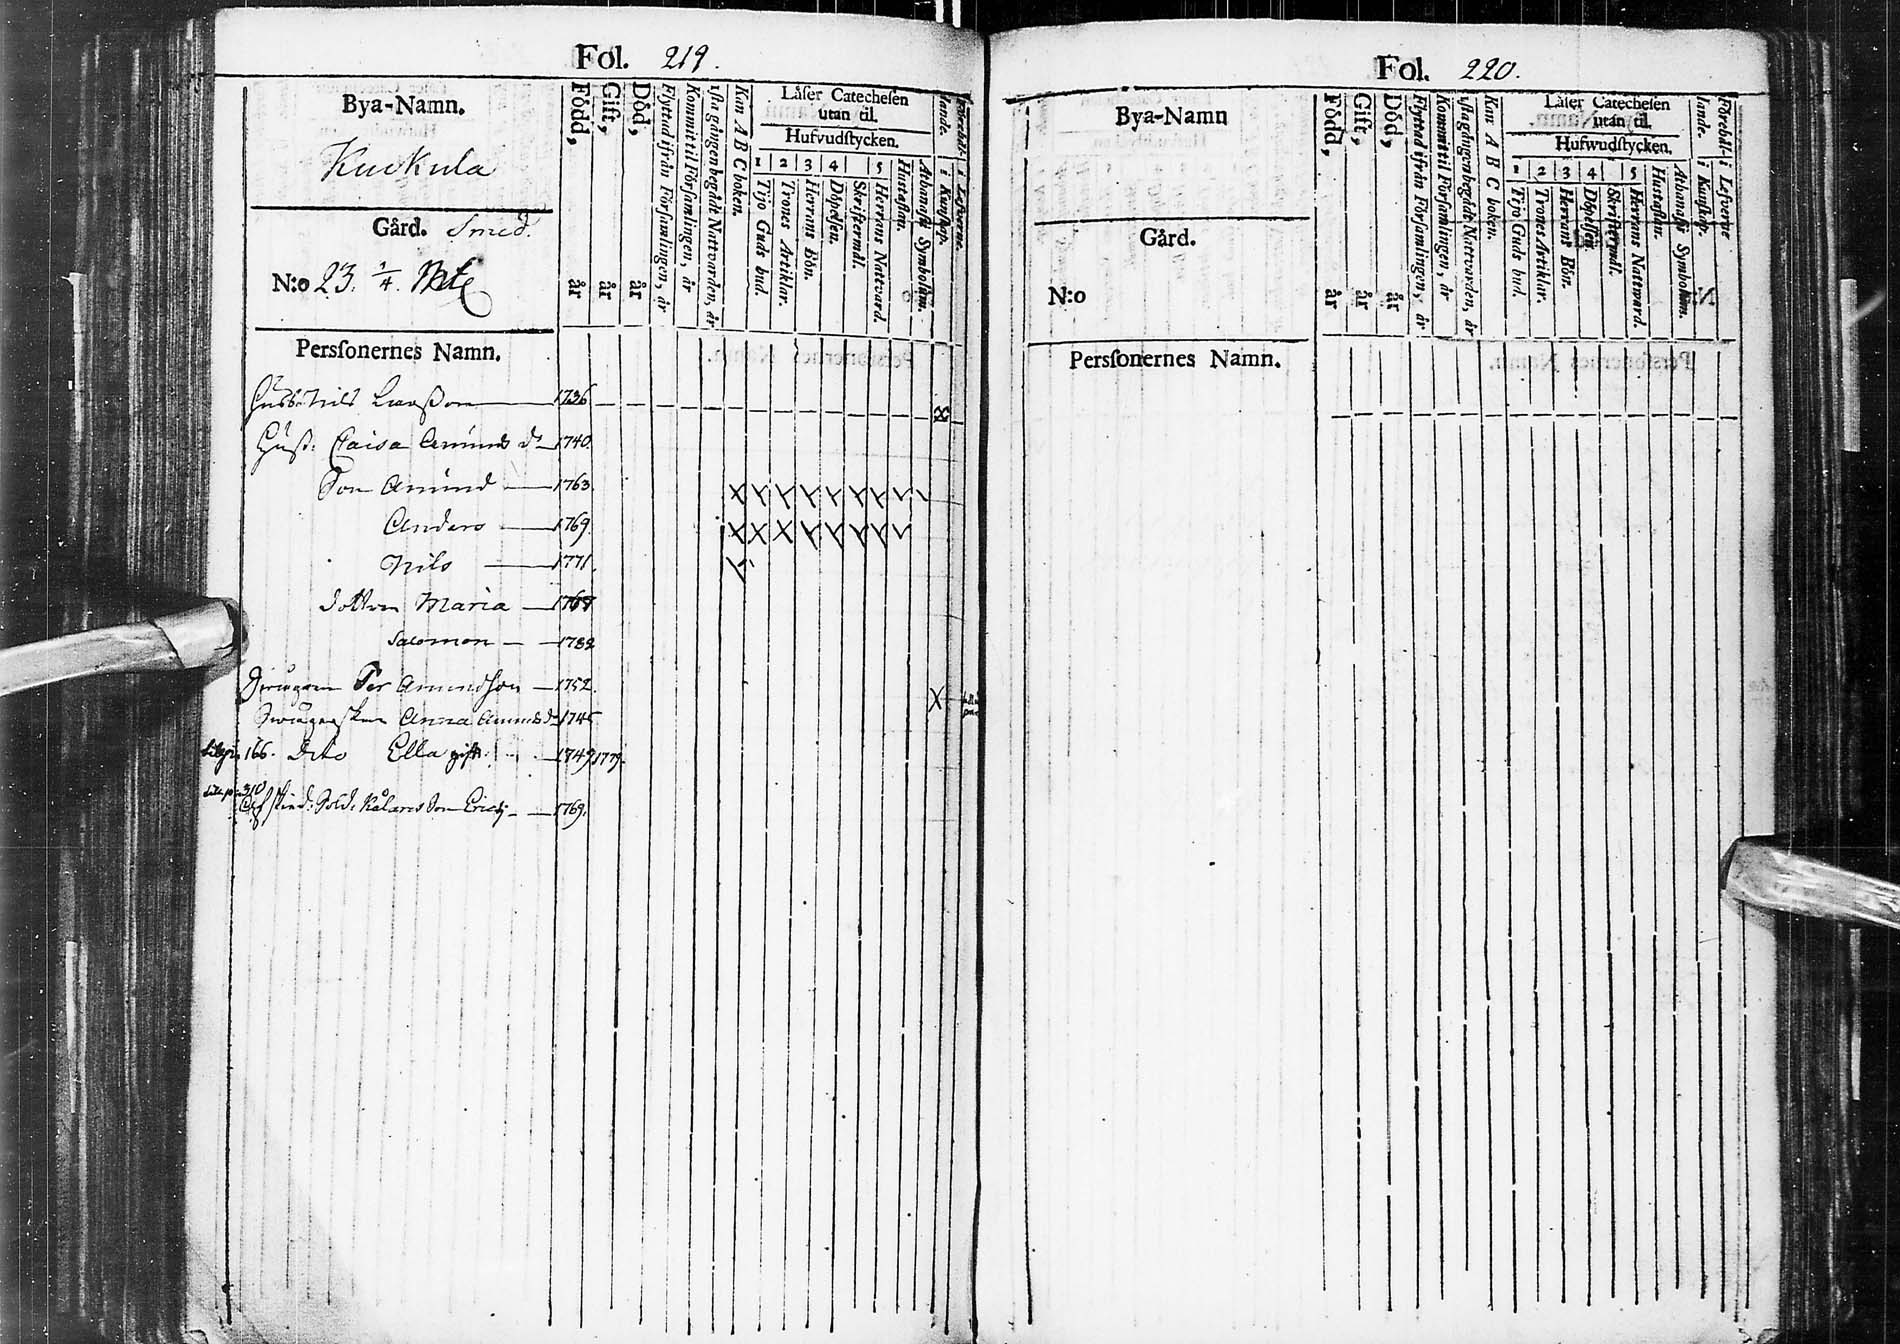 Fol. 219.
Bya-Namn.
Kuckula
Gård. Smed.
N:o 23. 1/4. Mtl
Född, år
Gift, år
Död, år
Flyttad ifrån Församlingen, år
Kommit til Församlingen, år
1sta gången begådt Nattvarden, år
Kan A B C boken.
Låser Catechesen
utan til.
Hufvudstycken.
1 2 3 4 5
Tijo Guds bud.
Trones Artiklar.
Herrans Bön.
Döpelsen.
Skriftermål.
Herrans Nattvard.
Hustaflan.
Athanasii Symbolum.
i Kunskap.
i Lefverne.
Perssonernes Namn.
Husb. Nils Larsson 1736
Hust: Caisa Amunds dr 1740
Son Amund 1763.
Anders 1769.
Nils 1771.
dottren Maria
Salomon 1782
Per Amundson 1752.
Anna Amunds dr 1745
166. dito Ella gift. 1749 1779.
310
Sold: Son Eric 1769.
Fol. 220.
Bya-Namn
Gård.
N:o
Född, år
Gift, år
Död, år
Flyttad ifrån Församlingen, år
Kommit til Församlingen, år
1sta gången begådt Nattvarden, år
Kan A B C boken.
Låser Catechesen
utan til.
Hufwudstycken.
1 2 3 4 5
Tijo Guds bud.
Trones Artiklar.
Herrans Bön.
Döpelsen.
Skriftermål.
Herrans Nattward.
Hustaflan.
Athanasii Symbolum.
i Kunskap.
i Lefverne
Perssonernes Namn.